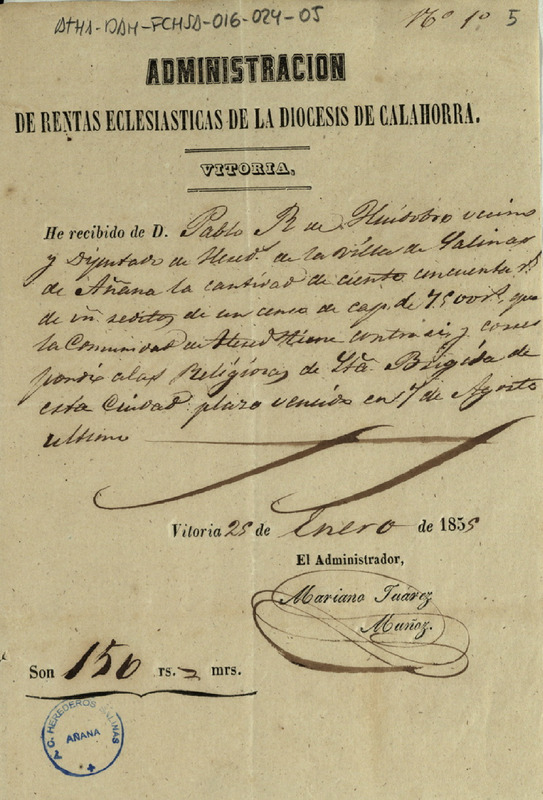 ATHA-DAH-FCHSA-016-024-05
Nº 1º 5
ADMINISTRACION
DE RENTAS ECLESIASTICAS DE LA DIOCESIS DE CALAHORRA.
VITORIA,
He recibido de D. Pablo R de Huidobro vecino
y Diputado de Hered.s de la Villa de Salinas
de Añana la cantidad de ciento cincuenta r.s
de un reditos de un censo de cap. de 7500 r.s que
la Comunidad de Hered tiene contra si, y corres
pondio a las Religiosas de Sta. Brigida de
esta Ciudad plazo vencido en 7 de Agosto
ultimo
Vitoria 25 de Enero de 1855
El Administrador,
Mariano Juarez
Muñoz.
Son 150 rs. mrs.
A. C. HEREDEROS SALINAS
AÑANA